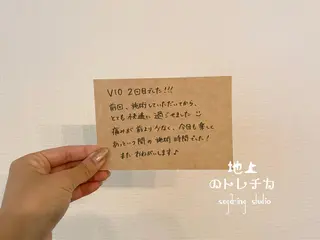 VIO 2回目でした!!!
前回、施術していただいてから、
とても快適に過ごせました
痛みが前より少なく、今日も楽しく
あっという間の施術時間でした!
またおねがいします♪
地上
のトレチカ
sugaring studio